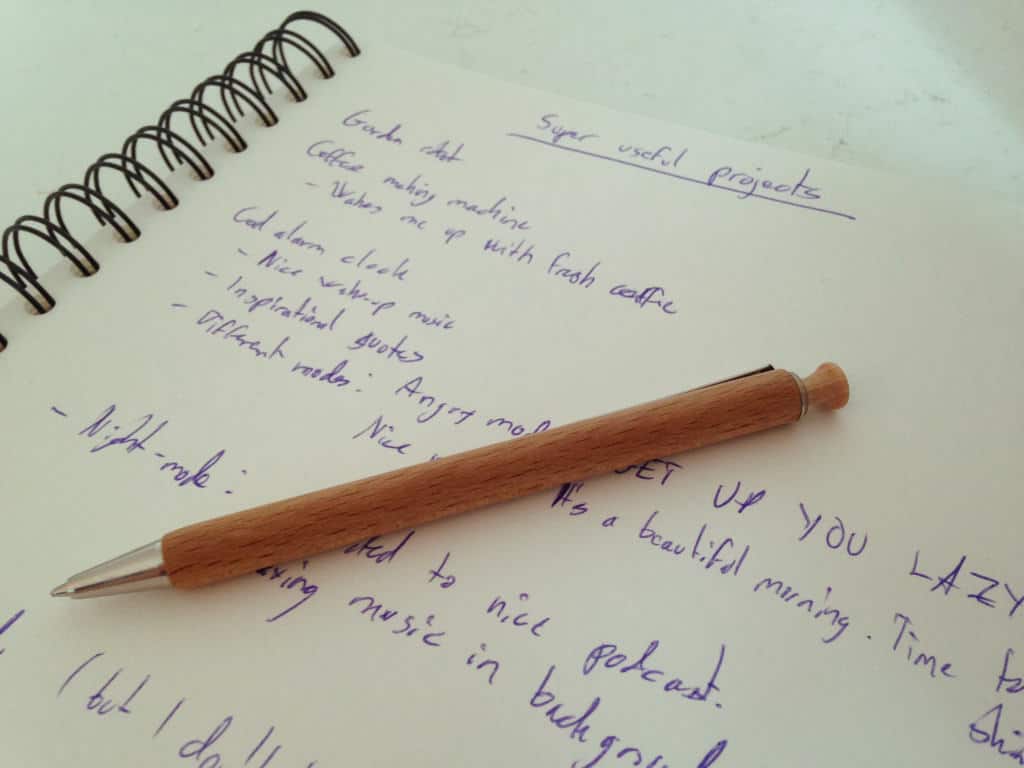 Super useful projects
Garden robot
Coffee making machine
- Wakes me up with fresh coffee
Cool alarm clock
- Nice wake-up music
- Inspirational quotes
- Different modes: Angry mode GET UP YOU LAZY
Nice It's a beautiful morning. Time to
- Night-mode:
to nice podcast.
music in
(but I don't